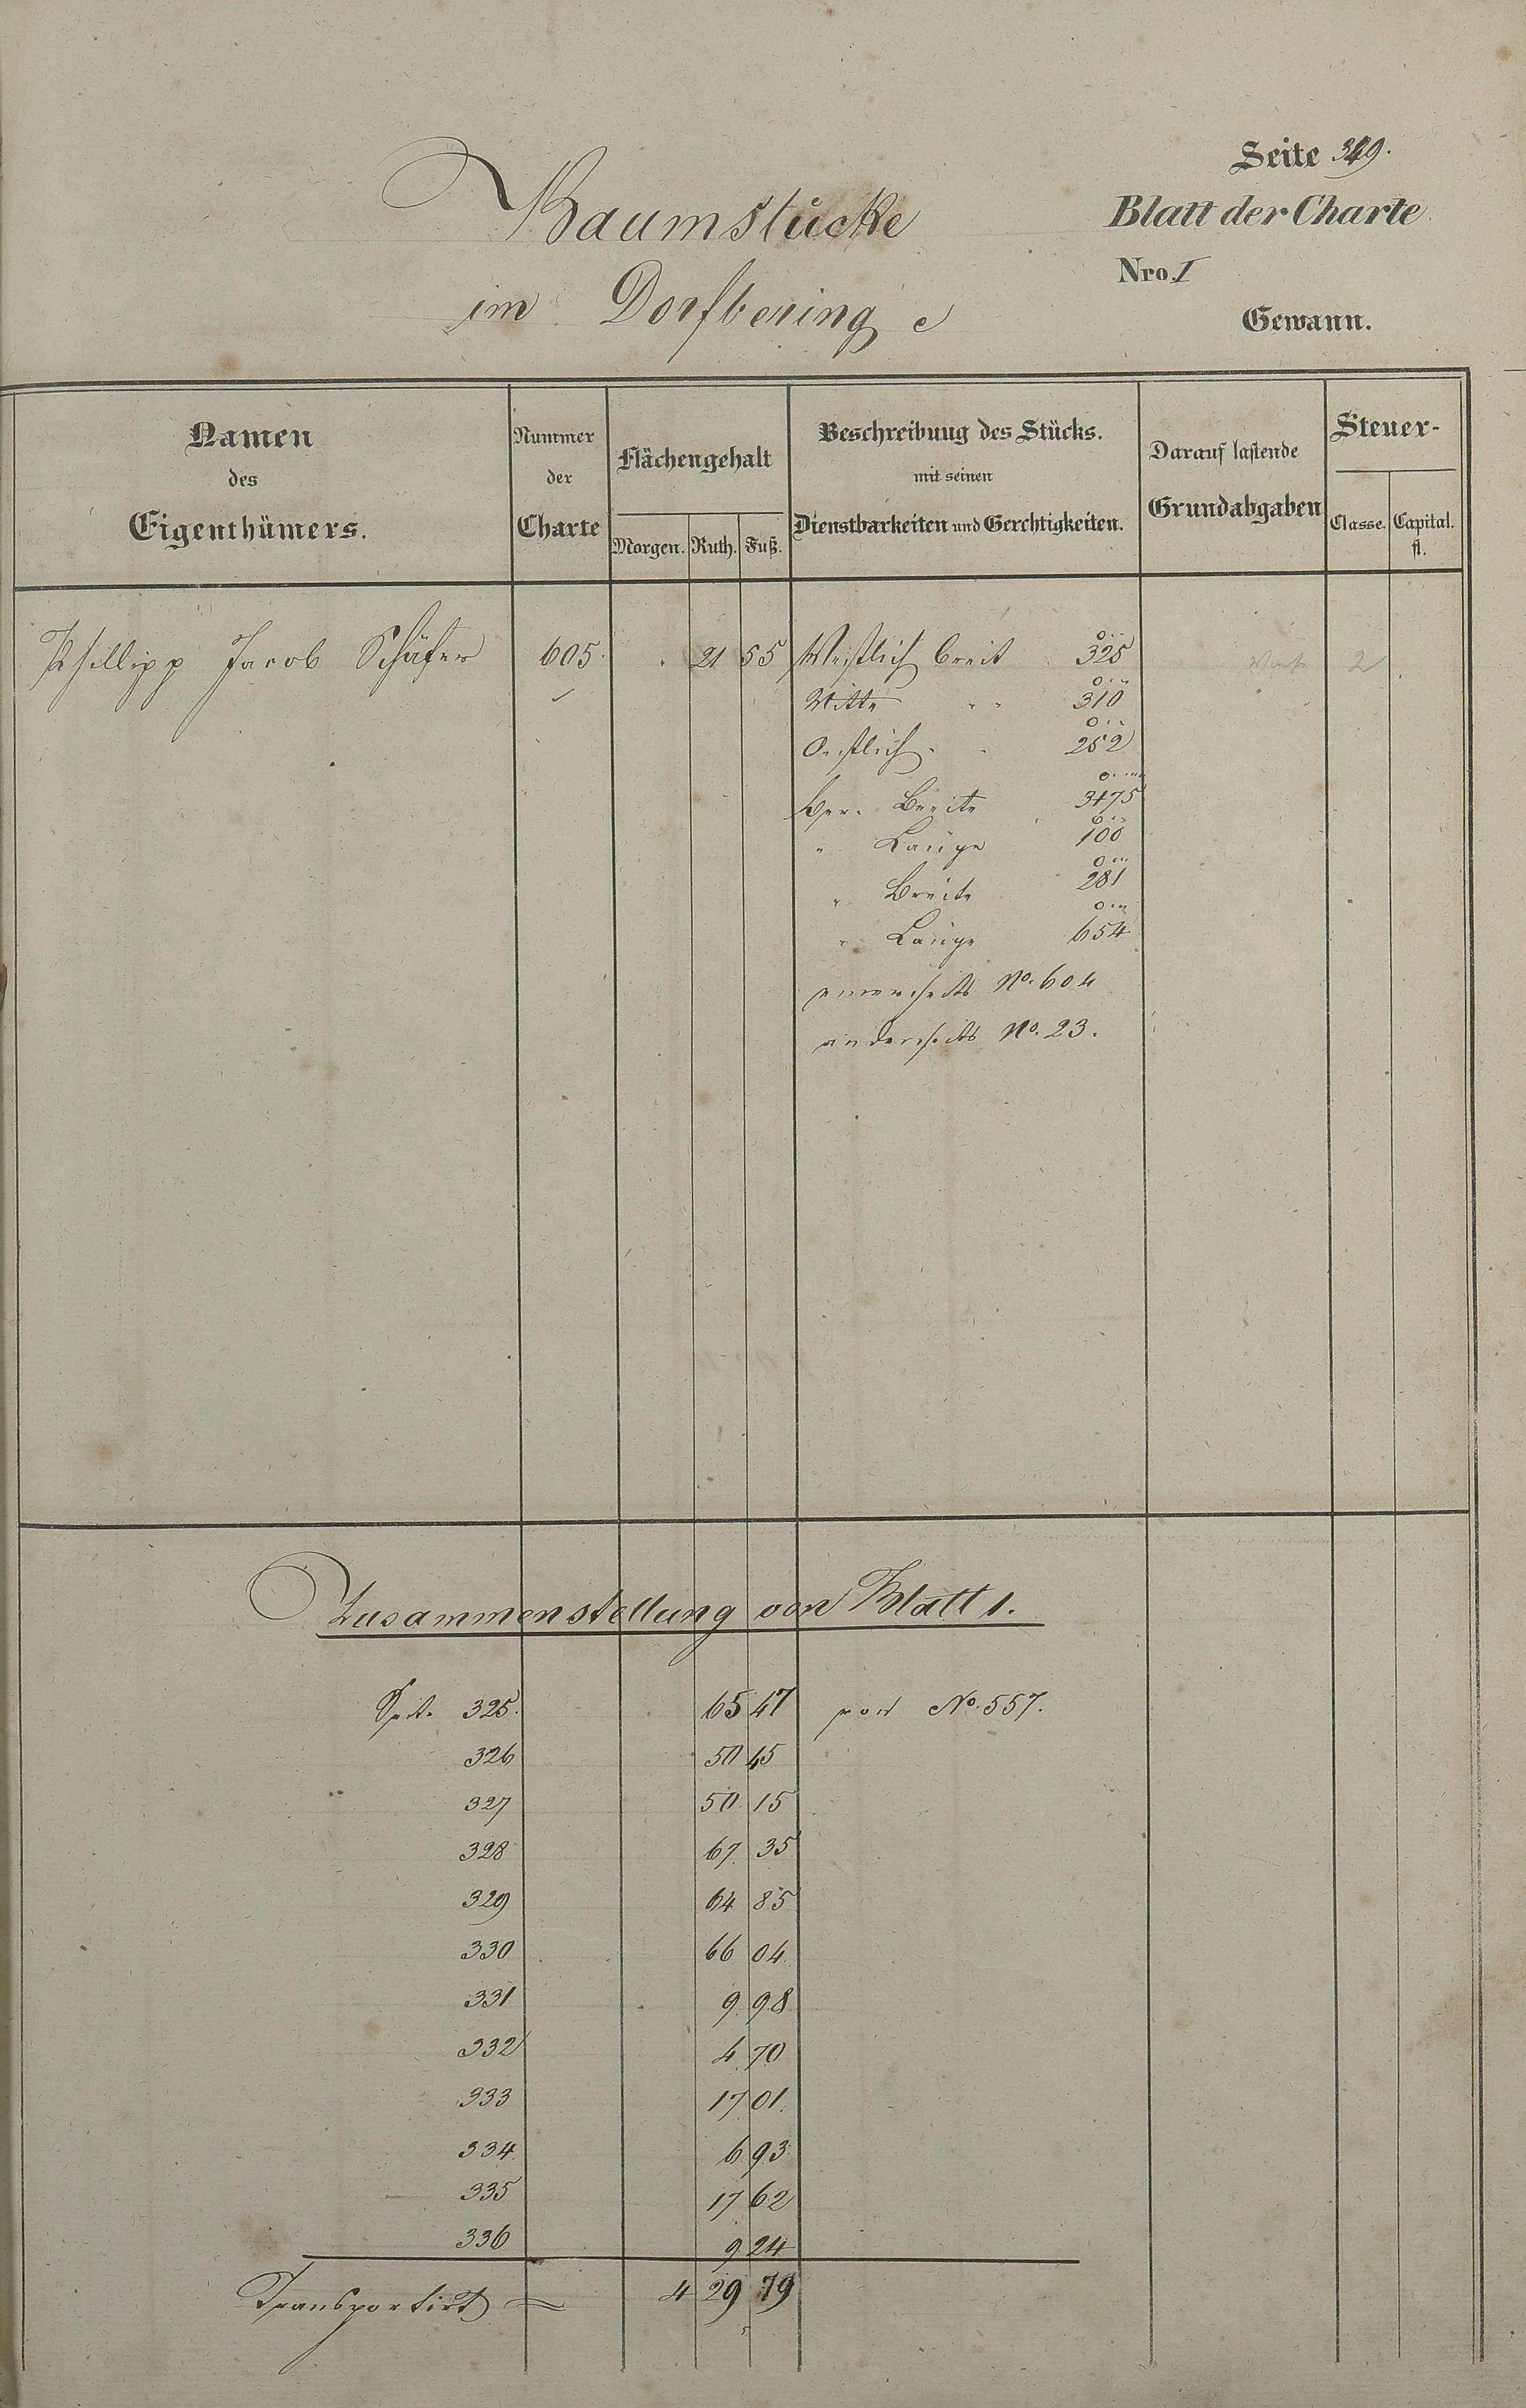 Seite 349.
Baumstücke
Blatt der Charte
Nro. I
im Dorfbering
Gewann.
Namen
des
Eigenthümers.
Nummer
der
Charte
Flächengehalt
Morgen. Ruth. Fuß.
Beschreibung des Stücks.
mit seinen
Dienstbarkeiten und Gerchtigkeiten.
Darauf lastende
Grundabgaben
Steuer-
Classe. Capital.
fl.
Phillipp Jacob Schäfer 605. " 21 55 Westlich breit 325 2
Mitte " " 310
Oestlich " " 252
Ver. Breite 3175
" Länge 100
" Breite 281
" Länge 654
einerseits No. 604
anderseits No. 23.
Zusammenstellung von Blatt 1.
Seite 325. 65 47 von No. 557.
326 50 45
327 50 15
328 67 35
329 64 85
330 66 04
331 9 98
332 4 70
333 17 01
334 6 93
335 17 62
336 9 24
Transportirt = 4 29 79